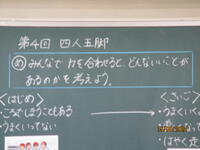 第4回 四人五脚
め みんなで 力を合わせると、どんないいことが
あるのかを考えよう。
<はじめ>
<さいご>
ころんでしまうこともある
うまくいってない
うまくいく
はやく走